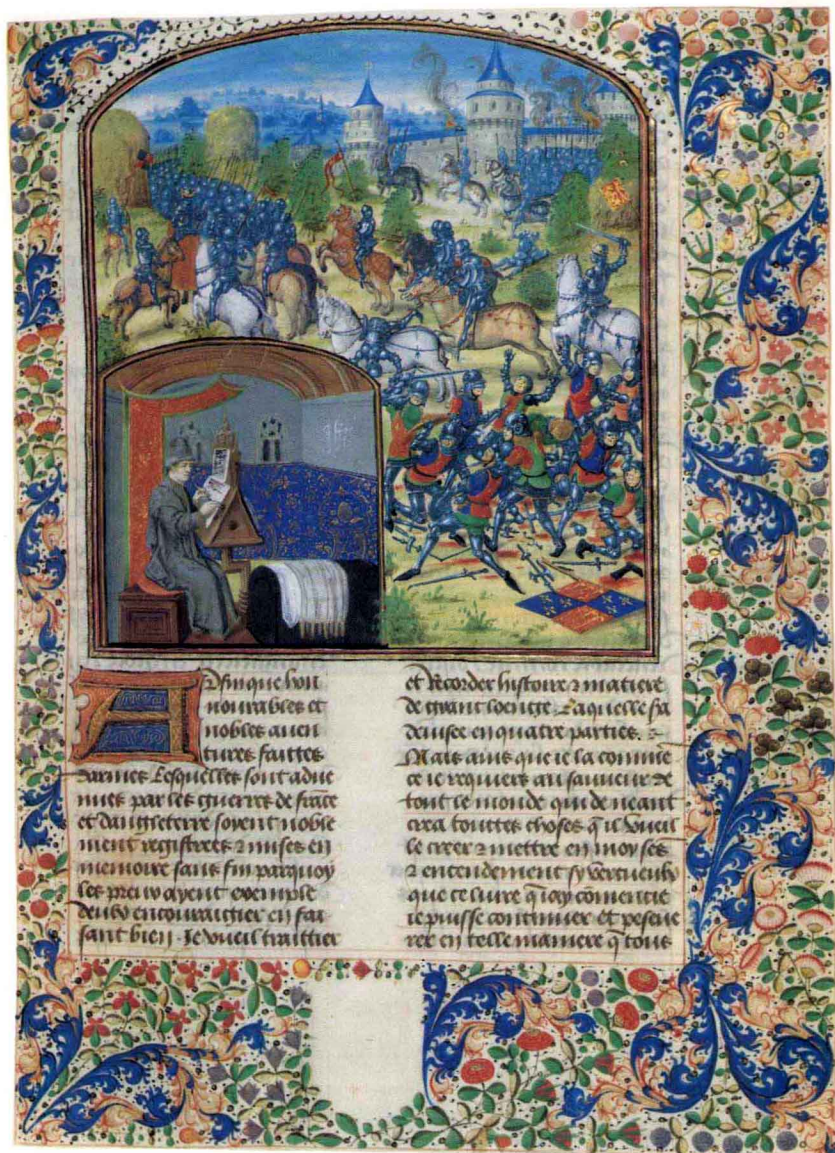 Afin que hon
nourables et
nobles aven
tures faittes
darmes Lesquelles sont adve
nues par les guerres de frāce
et dangleterre soyent noble
ment registrees ⁊ mises en
memoire sans fin parquoy
les preux ayent exemple
deulx encouraigier en fai
sant bien . Je vueil traittier
et Recorder histoire ⁊ matiere
de grant loenge . Laquelle sa
devisee en quatre parties .
Mais ains que ie la comme
ce ie requiers au sauveur de
tout le monde qui de neant
crea touttes choses q̄ il vueil
le creer ⁊ mettre en moy sēs
⁊ entendement sy vertueulx
que ce livre q̄ iay cōmencie
ie puisse continuer et perseve
rer en telle maniere q̄ tous